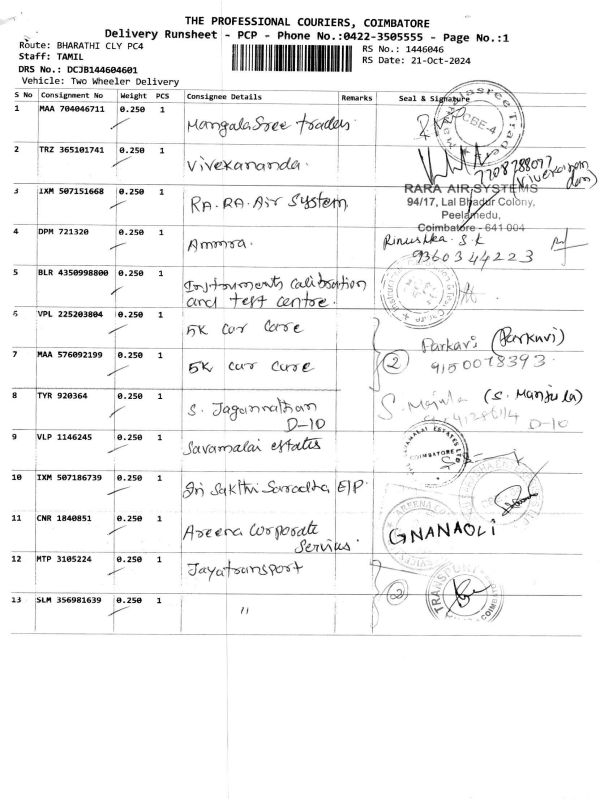 THE PROFESSIONAL COURIERS, COIMBATORE
Delivery Runsheet - PCP - Phone No.:0422-3505555 - Page No.:1
Route: BHARATHI CLY PC4 RS No.: 1446046
Staff: TAMIL RS Date: 21-Oct-2024
DRS No.: DCJB144604601
Vehicle: Two Wheeler Delivery
S No Consignment No Weight PCS Consignee Details Remarks Seal & Signature
1 MAA 704046711 0.250 1 Mangalasree traders
CBE-4
2 TRZ 365101741 0.250 1 Vivekananda.
7708788077
3 IXM 507151668 0.250 1 RA.RA.Air System
RARA AIR SYSTEMS
94/17, Lal Bhadur Colony,
Peelamedu,
Coimbatore - 641 004
4 DPM 721320 0.250 1 Ammra. Rinushka. S.K
9360344223
5 BLR 4350998800 0.250 1 Instruments calibration
and test centre.
6 VPL 225203804 0.250 1 5K car care
Parkavi (Parkavi)
7 MAA 576092199 0.250 1 5K car care 2 9150078393
8 TYR 920364 0.250 1 S. Jagannathan
D-10
S. Majula (S. Manjula)
D-10
9 VLP 1146245 0.250 1 Savamalai estates
COIMBATORE
10 IXM 507186739 0.250 1 Sri Sakthi Saradha E/P.
11 CNR 1840851 0.250 1 Areena Corporate
Servius. GNANAOLI
12 MTP 3105224 0.250 1 Jayatransport
2
13 SLM 356981639 0.250 1 "